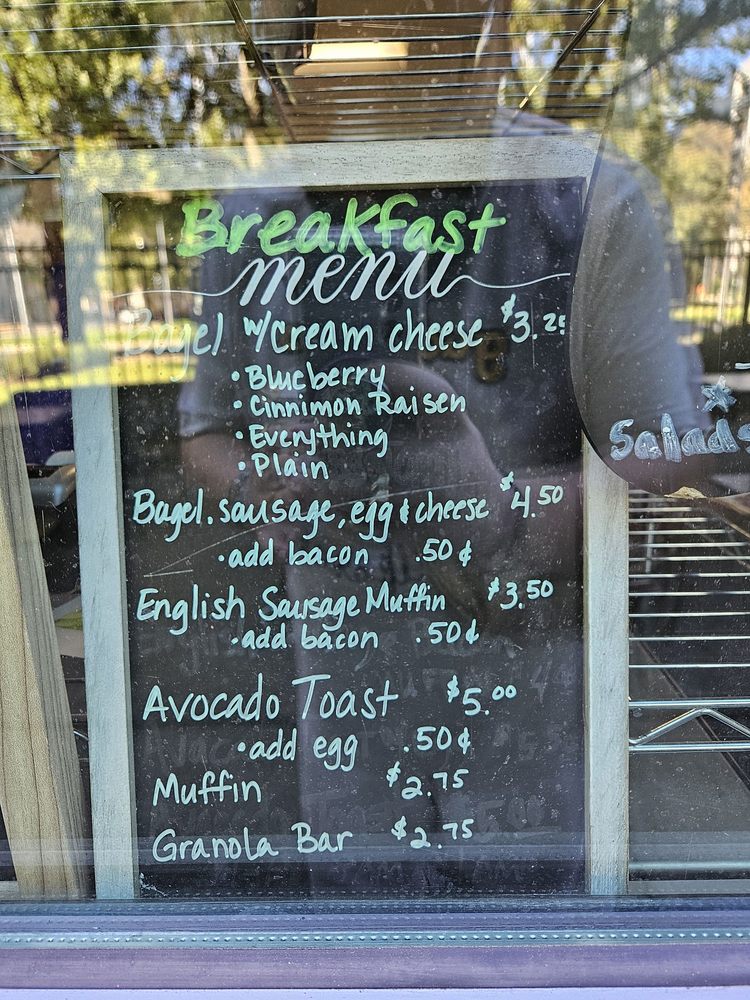 Breakfast
menu
Bagel w/cream cheese $3.25
• Blueberry
• Cinnimon Raisen
• Everything
• Plain
Bagel. sausage, egg & cheese $4.50
• add bacon .50¢
English Sausage Muffin $3.50
• add bacon .50¢
Avocado Toast $5.00
• add egg .50¢
Muffin $2.75
Granola Bar $2.75
Salads